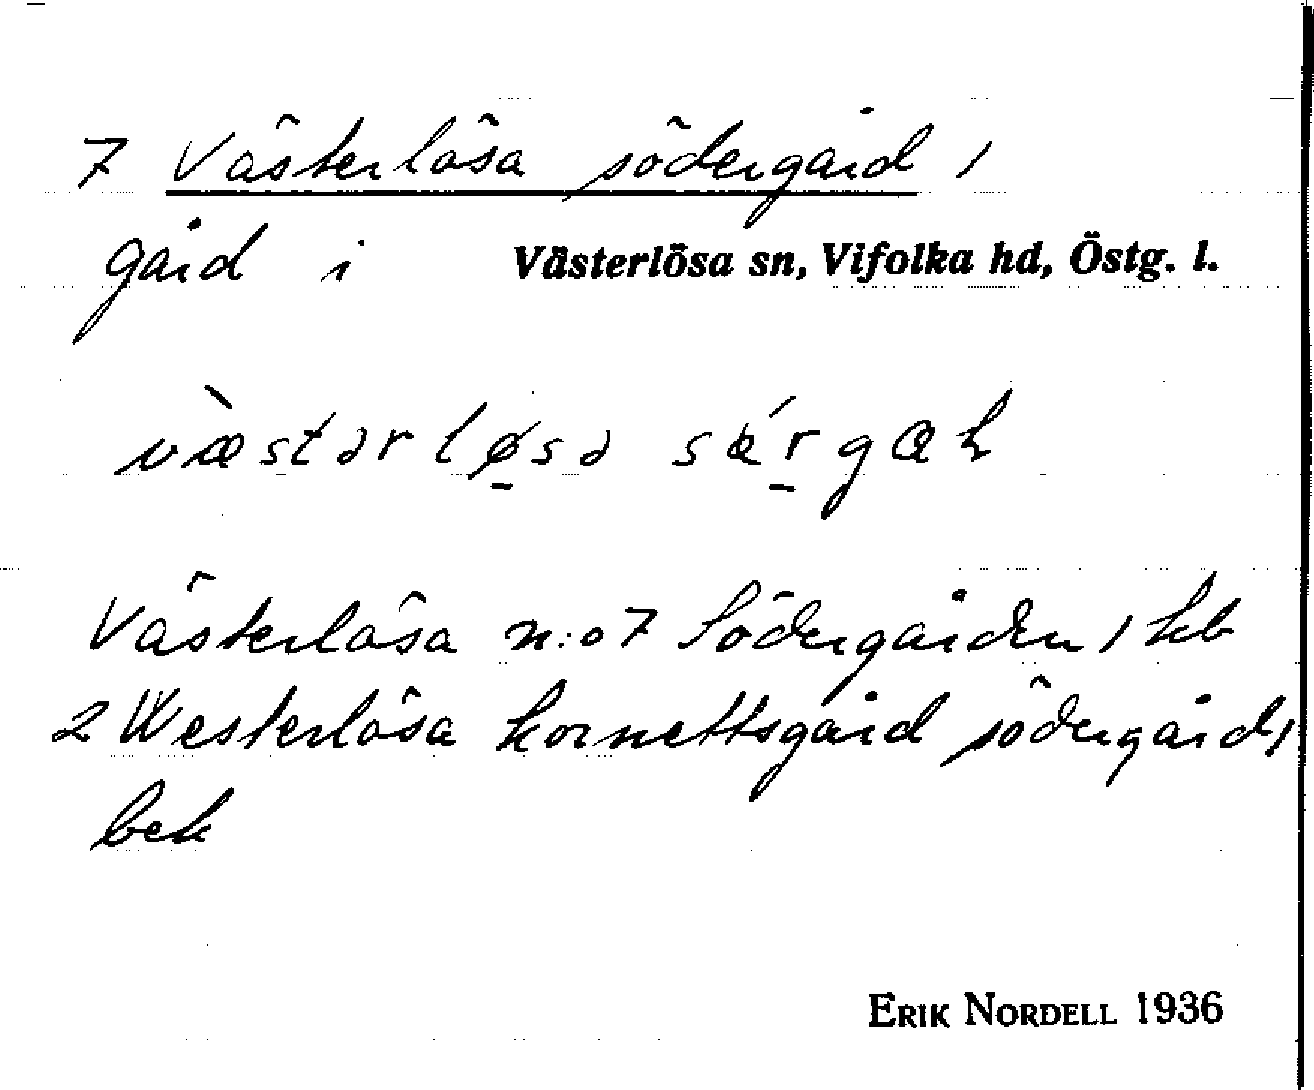 7 Västerlösa södergård /
gård i Västerlösa sn, Vifolka hd, Östg. l.
væ̀stərlø̱sə sǽṟgæh
Västerlösa n:o 7 Södergården / kb
2 Westerlösa kornettsgård södergård /
bek
ERIK NORDELL 1936